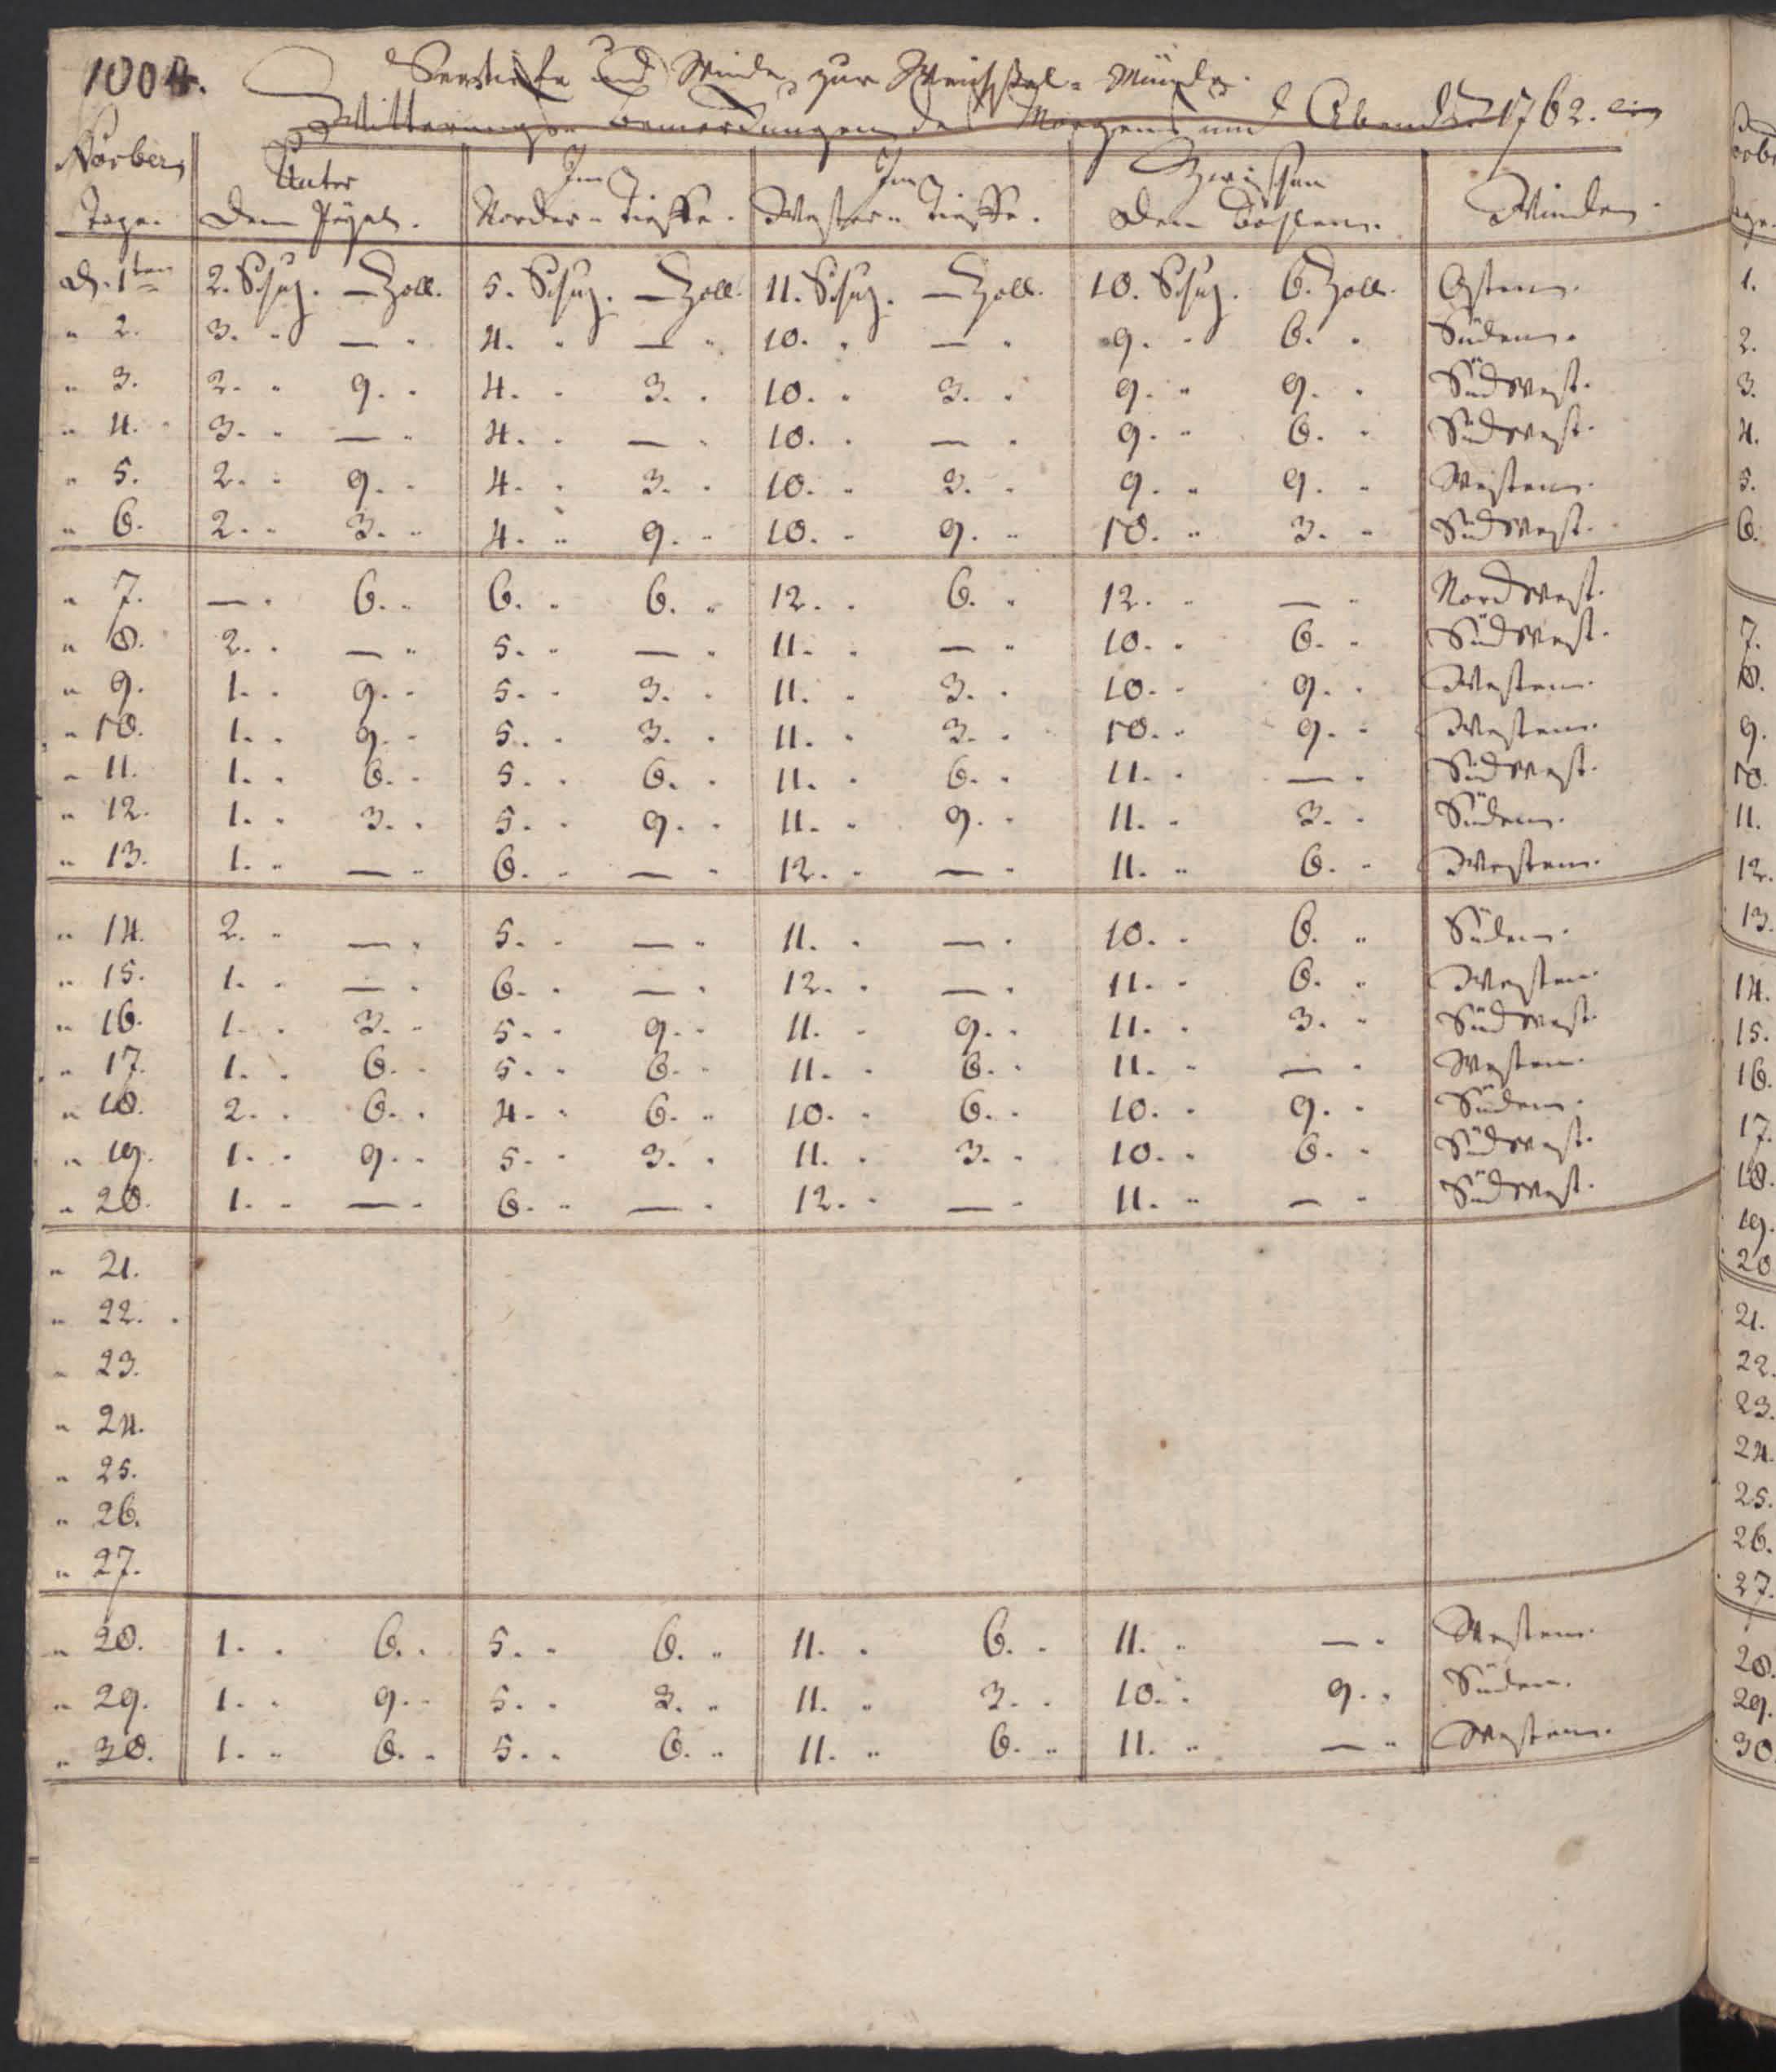 1804.
Seetiefe und Winde zur Weichsel-Münde.
Witterungs-Bemerckungen des Morgens und Abends 1762.
Novber Unter Im Im Zwischen
Tage. dem Pegel. Norder-Tieffe. Wester-Tieffe. den Winden.
d. 1ten 2. Schuh. — Zoll. 5. Schuh. — Zoll. 11. Schuh. — Zoll. 10. Schuh. 6. Zoll. Osten.
" 2. 3. " — " 4. " — " 10. " — " 9. " 6. " Süden.
" 3. 2. " 9. " 4. " 3. " 10. " 3. " 9. " 9. " Südwest.
" 4. 3. " — " 4. " — " 10. " — " 9. " 6. " Südwest.
" 5. 2. " 9. " 4. " 3. " 10. " 3. " 9. " 9. " Westen.
" 6. 2. " 3. " 4. " 9. " 10. " 9. " 10. " 3. " Südwest.
" 7. — " 6. " 6. " 6. " 12. " 6. " 12. " — " Nordwest.
" 8. 2. " — " 5. " — " 11. " — " 10. " 6. " Südwest.
" 9. 1. " 9. " 5. " 3. " 11. " 3. " 10. " 9. " Westen.
" 10. 1. " 9. " 5. " 3. " 11. " 3. " 10. " 9. " Westen.
" 11. 1. " 6. " 5. " 6. " 11. " 6. " 11. " — " Südwest.
" 12. 1. " 3. " 5. " 9. " 11. " 9. " 11. " 3. " Süden.
" 13. 1. " — " 6. " — " 12. " — " 11. " 6. " Westen.
" 14. 2. " — " 5. " — " 11. " — " 10. " 6. " Süden.
" 15. 1. " — " 6. " — " 12. " — " 11. " 6. " Westen.
" 16. 1. " 3. " 5. " 9. " 11. " 9. " 11. " 3. " Südwest.
" 17. 1. " 6. " 5. " 6. " 11. " 6. " 11. " — " Westen.
" 18. 2. " 6. " 4. " 6. " 10. " 6. " 10. " 9. " Süden.
" 19. 1. " 9. " 5. " 3. " 11. " 3. " 10. " 6. " Südwest.
" 20. 1. " — " 6. " — " 12. " — " 11. " — " Südwest.
" 21.
" 22.
" 23.
" 24.
" 25.
" 26.
" 27.
" 28. 1. " 6. " 5. " 6. " 11. " 6. " 11. " — " Westen.
" 29. 1. " 9. " 5. " 3. " 11. " 3. " 10. " 9. " Süden.
" 30. 1. " 6. " 5. " 6. " 11. " 6. " 11. " — " Westen.
1.
2.
3.
4.
5.
6.
7.
8.
9.
10.
11.
12.
13.
14.
15.
16.
17.
18.
19.
20
21.
22.
23.
24.
25.
26.
27.
28.
29.
30